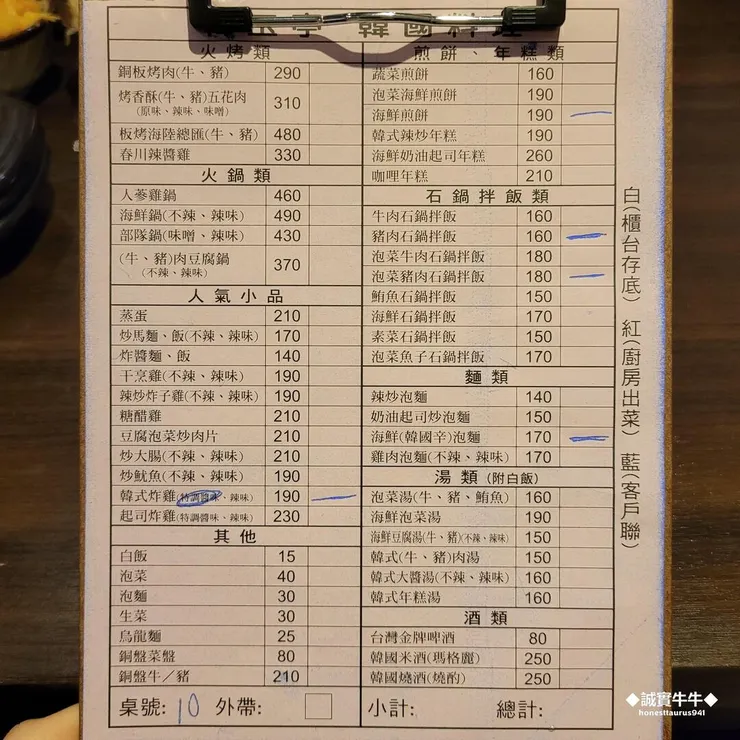 韓國料理
火烤類
銅板烤肉(牛、豬) 290
烤香酥(牛、豬)五花肉
(原味、辣味、味噌) 310
板烤海陸總匯(牛、豬) 480
春川辣醬雞 330
火鍋類
人蔘雞鍋 460
海鮮鍋(不辣、辣味) 490
部隊鍋(味噌、辣味) 430
(牛、豬)肉豆腐鍋
(不辣、辣味) 370
人氣小品
蒸蛋 210
炒馬麵、飯(不辣、辣味) 170
炸醬麵、飯 140
干烹雞(不辣、辣味) 190
辣炒炸子雞(不辣、辣味) 190
糖醋雞 210
豆腐泡菜炒肉片 210
炒大腸(不辣、辣味) 210
炒魷魚(不辣、辣味) 190
韓式炸雞(特調醬味、辣味) 190
起司炸雞(特調醬味、辣味) 230
其他
白飯 15
泡菜 40
泡麵 30
生菜 30
烏龍麵 25
銅盤菜盤 80
銅盤牛／豬 210
桌號: 10 外帶:
煎餅、年糕類
蔬菜煎餅 160
泡菜海鮮煎餅 190
海鮮煎餅 190
韓式辣炒年糕 190
海鮮奶油起司年糕 260
咖哩年糕 210
石鍋拌飯類
牛肉石鍋拌飯 160
豬肉石鍋拌飯 160
泡菜牛肉石鍋拌飯 180
泡菜豬肉石鍋拌飯 180
鮪魚石鍋拌飯 150
海鮮石鍋拌飯 170
素菜石鍋拌飯 150
泡菜魚子石鍋拌飯 170
麵類
辣炒泡麵 140
奶油起司炒泡麵 150
海鮮(韓國辛)泡麵 170
雞肉泡麵(不辣、辣味) 170
湯類(附白飯)
泡菜湯(牛、豬、鮪魚) 160
海鮮泡菜湯 190
海鮮豆腐湯(牛、豬)(不辣、辣味) 150
韓式(牛、豬)肉湯 150
韓式大醬湯(不辣、辣味) 160
韓式年糕湯 160
酒類
台灣金牌啤酒 80
韓國米酒(瑪格麗) 250
韓國燒酒(燒酌) 250
小計: 總計:
白(櫃台存底) 紅(廚房出菜) 藍(客戶聯)
◆誠實牛牛◆
honesttaurus941